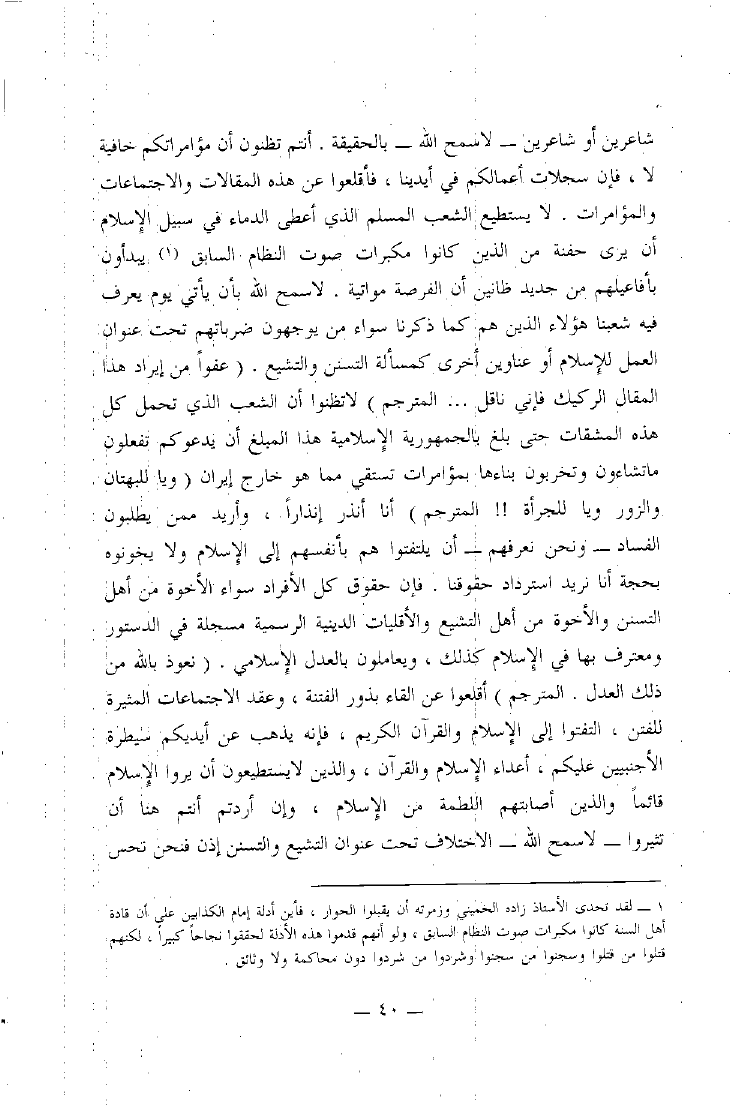 شاعرين أو شاعرين ــ لاسمح الله ــ بالحقيقة . أنتم تظنون أن مؤامراتكم خافية
لا ، فإن سجلات أعمالكم في أيدينا ، فأقلعوا عن هذه المقالات والاجتماعات
والمؤامرات . لا يستطيع الشعب المسلم الذي أعطى الدماء في سبيل الإسلام
أن يرى حفنة من الذين كانوا مكبرات صوت النظام السابق (١) يبدأون
بأفاعيلهم من جديد ظانين أن الفرصة مواتية . لاسمح الله بأن يأتي يوم يعرف
فيه شعبنا هؤلاء الذين هم كما ذكرنا سواء من يوجهون ضرباتهم تحت عنوان
العمل للإسلام أو عناوين أخرى كمسألة التسنن والتشيع . ( عفواً من إيراد هذا
المقال الركيك فإني ناقل ... المترجم ) لاتظنوا أن الشعب الذي تحمل كل
هذه المشقات حتى بلغ بالجمهورية الإسلامية هذا المبلغ أن يدعوكم تفعلون
ماتشاءون وتخربون بناءها بمؤامرات تستقي مما هو خارج إيران ( ويا للبهتان
والزور ويا للجرأة !! المترجم ) أنا أنذر إنذاراً ، وأريد ممن يطلبون
الفساد ــ ونحن نعرفهم ــ أن يلتفتوا هم بأنفسهم إلى الإسلام ولا يخونوه
بحجة أنا نريد استرداد حقوقنا . فإن حقوق كل الأفراد سواء الأخوة من أهل
التسنن والأخوة من أهل التشيع والأقليات الدينية الرسمية مسجلة في الدستور
ومعترف بها في الإسلام كذلك ، ويعاملون بالعدل الإسلامي . ( نعوذ بالله من
ذلك العدل . المترجم ) أقلعوا عن القاء بذور الفتنة ، وعقد الاجتماعات المثيرة
للفتن ، التفتوا إلى الإسلام والقرآن الكريم ، فإنه يذهب عن أيديكم سيطرة
الأجنبيين عليكم ، أعداء الإسلام والقرآن ، والذين لايستطيعون أن يروا الإسلام
قائماً والذين أصابتهم اللطمة من الإسلام ، وإن أردتم أنتم هنا أن
تثيروا ــ لاسمح الله ــ الاختلاف تحت عنوان التشيع والتسنن إذن فنحن نحس
١ ــ لقد تحدى الأستاذ زاده الخميني وزمرته أن يقبلوا الحوار ، فأين أدلة إمام الكذابين على أن قادة
أهل السنة كانوا مكبرات صوت النظام السابق ، ولو أنهم قدموا هذه الأدلة لحققوا نجاحاً كبيراً ، لكنهم
قتلوا من قتلوا وسجنوا من سجنوا وشردوا من شردوا دون محاكمة ولا وثائق .
ــ ٤٠ ــ